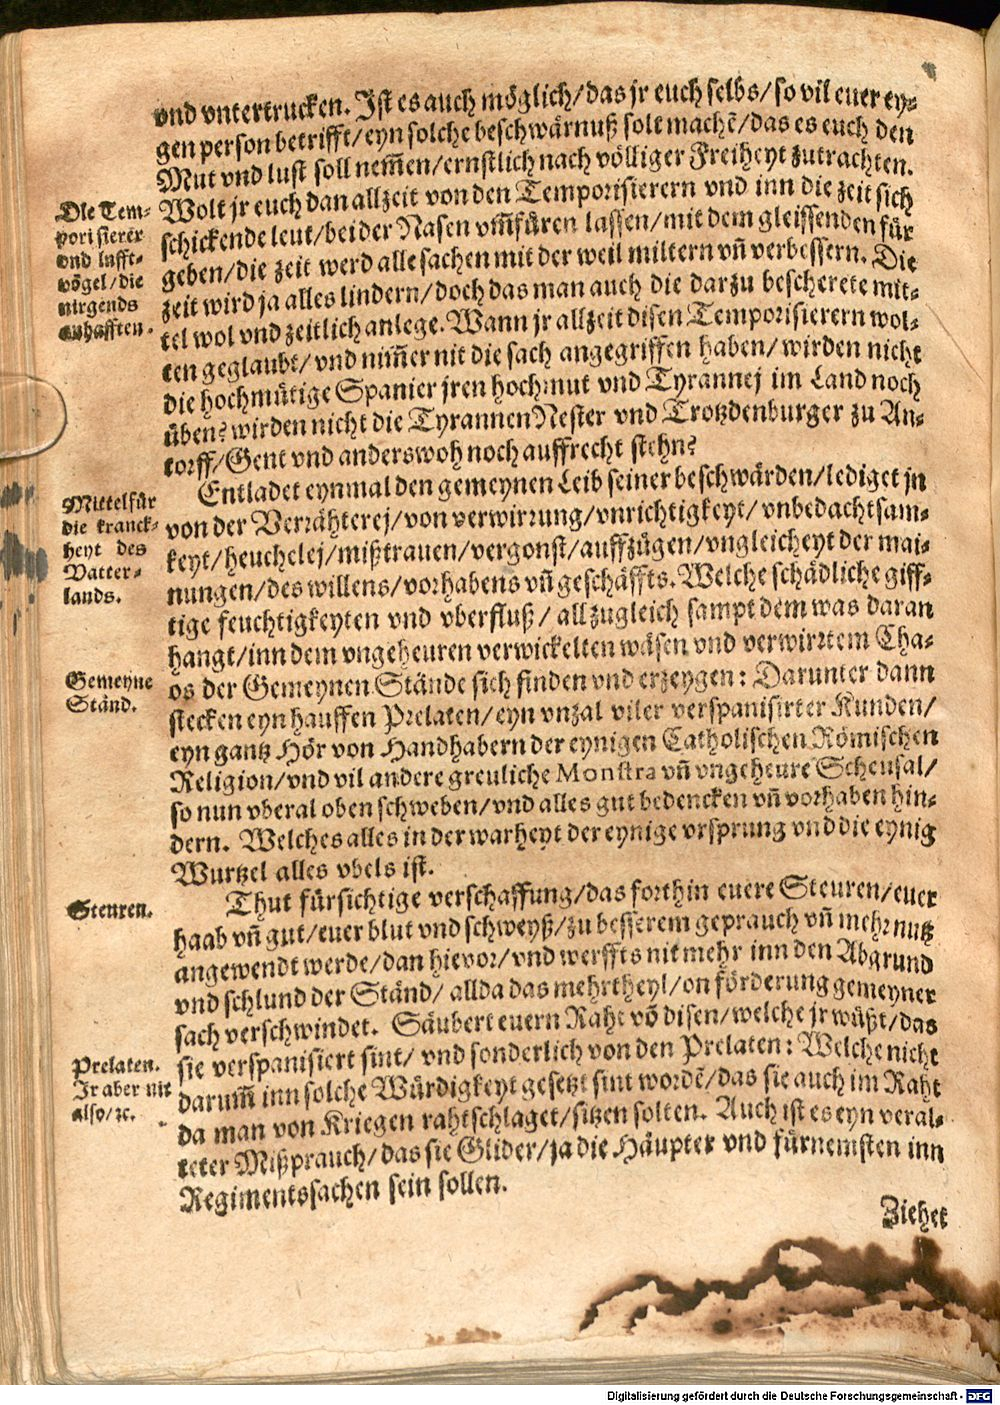 vnd vntertrucken. Ist es auch möglich/das jr euch selbs/so vil euer ey-
gen person betrifft/eyn solche beschwärnuß solt machē/das es euch den
Mut vnd lust soll nem̄en/ernstlich nach völliger Freiheyt zutrachten.
Wolt jr euch dan allzeit von den Temporisierern vnd inn die zeit sich
schickende leut/bei der Nasen vm̄füren lassen/mit dem gleissenden für
geben/die zeit werd alle sachen mit der weil miltern vñ verbessern. Die
zeit wird ja alles lindern/doch das man auch die darzu bescherete mit-
tel wol vnd zeitlich anlege. Wann jr allzeit disen Temporisierern wol-
ten geglaubt/vnd nim̄er nit die sach angegriffen haben/wirden nicht
die hochmütige Spanier jren hochmut vnd Tyrannej im Land noch
üben? wirden nicht die Tyrannen Nester vnd Trotzdenburger zu An-
torff/Gent vnd anderswoh noch auffrecht stehn?
Die Tem-
porisierer
vnd lufft-
vögel/die
nirgends
anhafften.
Entladet eynmal den gemeynen Leib seiner beschwärden/lediget jn
von der Verrähterej/von verwirrung/vnrichtigkeyt/vnbedachtsam-
keyt/heuchelej/mißtrauen/vergonst/auffzügen/vngleicheyt der mai-
nungen/des willens/vorhabens vñ geschäffts. Welche schädliche giff-
tige feuchtigkeyten vnd vberfluß/ allzugleich sampt dem was daran
hangt/inn dem vngeheuren verwickelten wäsen vnd verwirrtem Cha-
os der Gemeynen Stände sich finden vnd erzeygen: Darunter dann
stecken eyn hauffen Prelaten/eyn vnzal viler verspanisirter Kunden/
eyn gantz Hör von Handhabern der eynigen Catholischen Römischen
Religion/vnd vil andere greuliche Monstra vñ vngeheure Scheusal/
so nun vberal oben schweben/vnd alles gut bedencken vñ vorhaben hin-
dern. Welches alles in der warheyt der eynige vrsprung vnd die eynig
Wurtzel alles vbels ist.
Mittel für
die kranck-
heyt des
Vatter-
lands.
Gemeyne
Ständ.
Thut fürsichtige verschaffung/das forthin euere Steuren/euer
haab vñ gut/euer blut vnd schweyß/zu besserem geprauch vñ mehr nutz
angewendt werde/dan hievor/vnd werffts nit mehr inn den Abgrund
vnd schlund der Ständ/ allda das mehrtheyl/on förderung gemeyner
sach verschwindet. Säubert euern Raht vō disen/welche jr wüßt/das
sie verspanisiert sint/ vnd sonderlich von den Prelaten: Welche nicht
darum̄ inn solche Würdigkeyt gesetzt sint wordē/das sie auch im Raht
da man von Kriegen rahtschlaget/sitzen solten. Auch ist es eyn veral-
teter Mißprauch/das sie Glider/ja die Häupter vnd fürnemsten inn
Regimentssachen sein sollen.
Steuren.
Prelaten.
Jr aber nit
also/ꝛc.
Ziehet
Digitalisierung gefördert durch die Deutsche Forschungsgemeinschaft - DFG